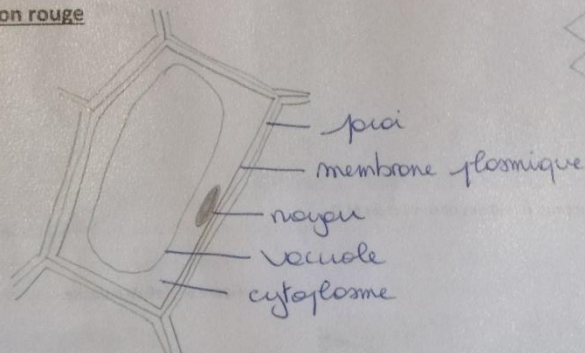 on rouge
paroi
membrane plasmique
noyau
vacuole
cytoplasme